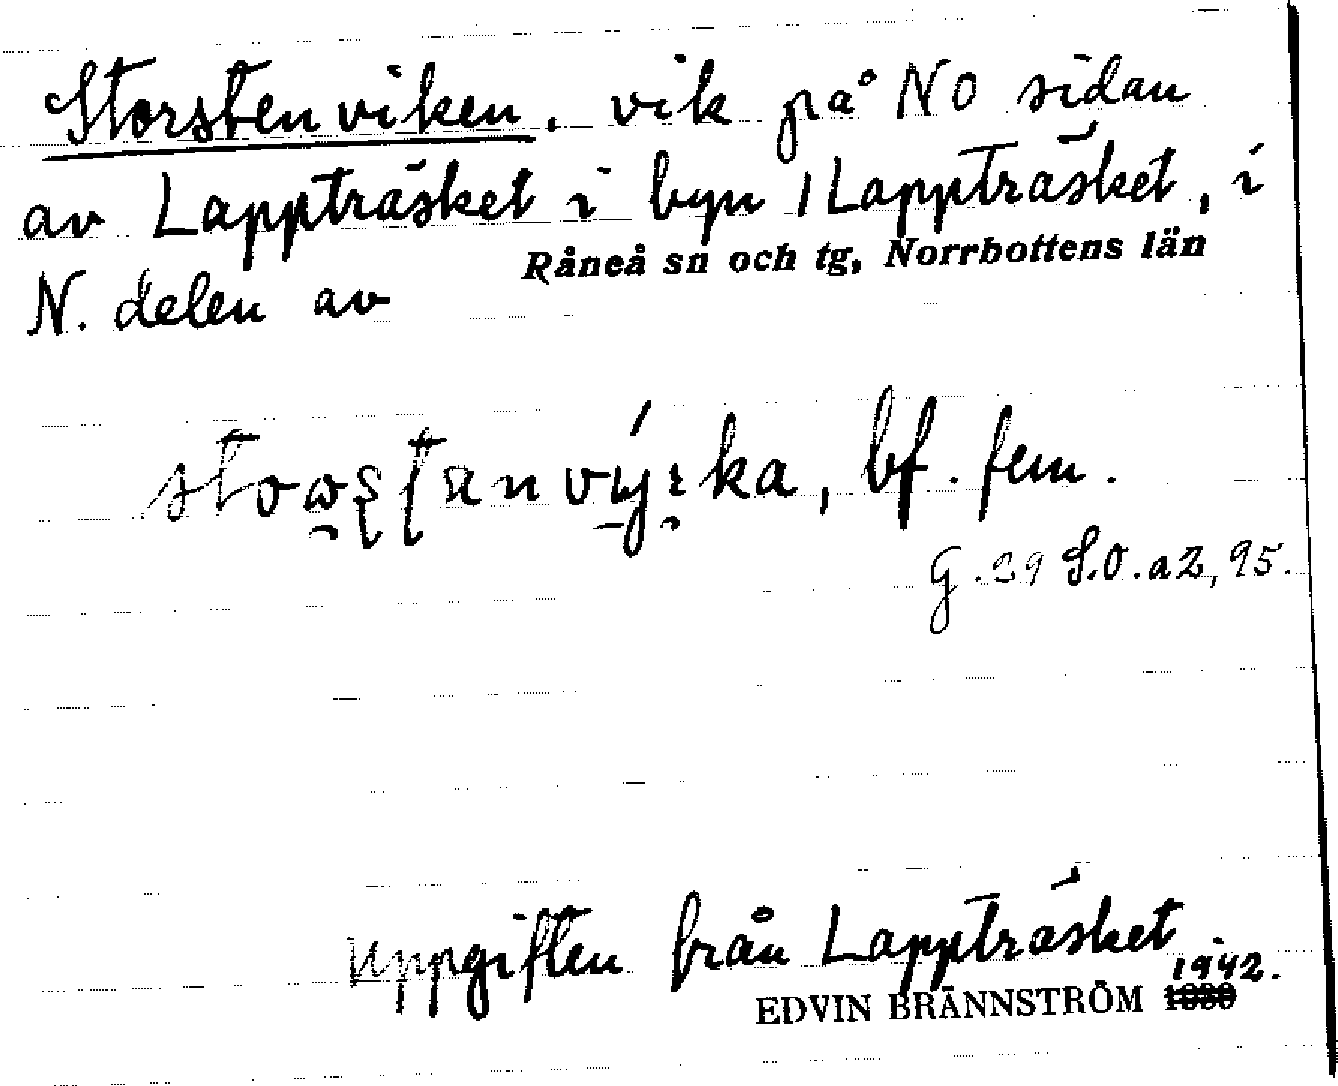 Storstenviken, vik på NO sidan
av Lappträsket i byn 1 Lappträsket, i
Råneå sn och tg, Norrbottens län
N. delen av
bf. fem.
G. 29 S.O. a2, 95.
uppgiften från Lappträsket
1942.
EDVIN BRÄNNSTRÖM 1930